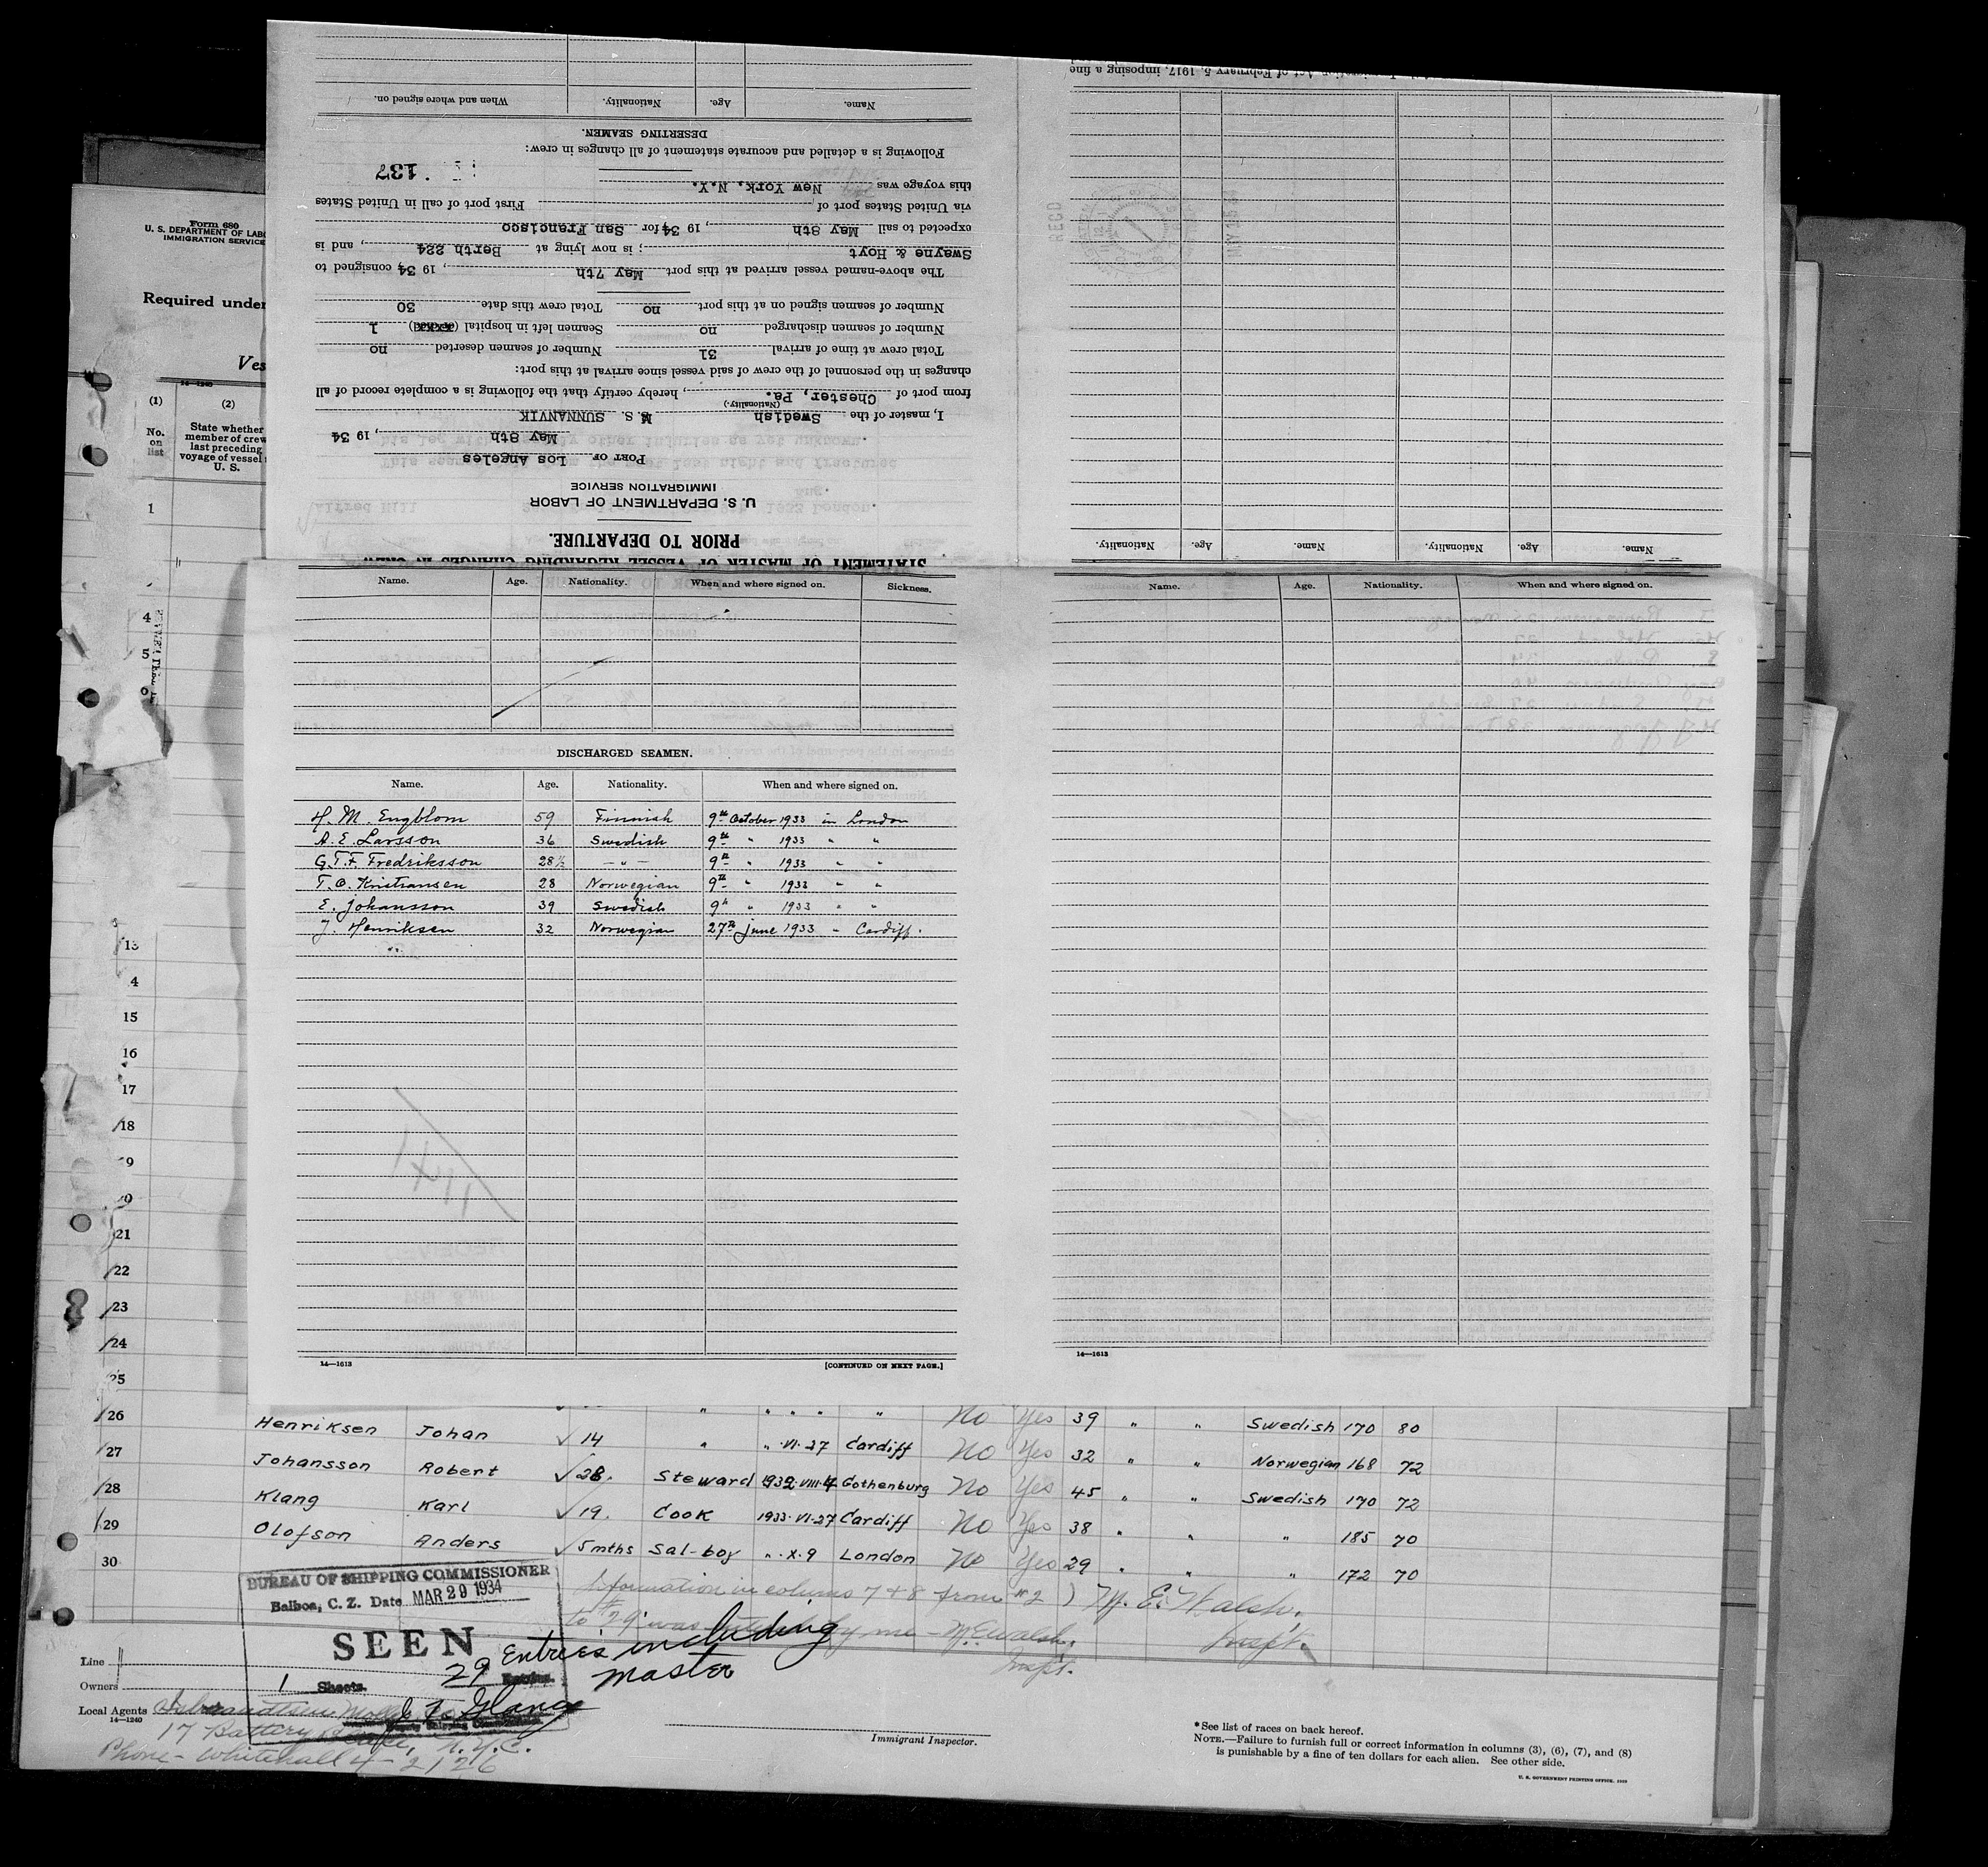 imposing a fine
Name. Age. Nationality. When and where signed on.
DESERTING SEAMEN.
Following is a detailed and accurate statement of all changes in crew:
137
this voyage was New York, N.Y.
via United States port of First port of call in United States
expected to sail May 8th, 1934 for San Francisco
Swayne & Hoyt; is now lying at Berth 224, and is
The above-named vessel arrived at this port May 7th, 1934 consigned to
Number of seamen signed on at this port no Total crew this date 30
Number of seamen discharged no Seamen left in hospital 1
Total crew at time of arrival 31 Number of seamen deserted no
changes in the personnel of the crew of said vessel since arrival at this port:
from port of Chester, Pa., hereby certify that the following is a complete record of all
(Nationality.)
I, master of the Swedish M.S. SUNNANVIK
May 8th, 1934
PORT OF Los Angeles
IMMIGRATION SERVICE
U. S. DEPARTMENT OF LABOR
PRIOR TO DEPARTURE.
STATEMENT OF MASTER OF VESSEL REGARDING CHANGES IN CREW
Name. Age. Nationality. Name. Age. Nationality.
RECD
Form 680
U. S. DEPARTMENT OF LABO
IMMIGRATION SERVICE
Required under
Ves
14—1240
(1) (2)
No. on list
State whether
member of crew
last preceding
voyage of vessel
U. S.
1
4
5
Name. Age. Nationality. When and where signed on. Sickness.
Name. Age. Nationality. When and where signed on.
DISCHARGED SEAMEN.
Name. Age. Nationality. When and where signed on.
H. M. Engblom 59 Finnish 9th October 1933 in London
A. E. Larsson 36 Swedish 9th " 1933 " "
G.T.F. Fredriksson 28½ —"— 9th " 1933 " "
T. O. Kristiansen 28 Norwegian 9th " 1933 " "
E. Johansson 39 Swedish 9th " 1933 " "
J. Henriksen 32 Norwegian 27th June 1933 " Cardiff.
14—1613 [CONTINUED ON NEXT PAGE.]
14—1613
13
4
15
16
17
18
9
20
21
22
23
24
25
26 " " " " " No Yes 39 " " Swedish 170 80
Henriksen Johan 14 " " VI-27 Cardiff No Yes 32 " " Norwegian 168 72
27
Johansson Robert 28. Steward 1932-VIII-4 Gothenburg No Yes 45 " " Swedish 170 72
28
Klang Karl 19. Cook 1933-VI-27 Cardiff No Yes 38 " " " 185 70
29
Olofson Anders 5mths Sal-boy " X-9 London No Yes 29 " " " 172 70
30
Information in colums 7 & 8 from #2 ) M. E. Walsh.
to #29 was by me - M.E. Walsh. Inspt.
Inspt.
BUREAU OF SHIPPING COMMISSIONER
Balboa, C. Z. Date MAR 29 1934
SEEN
29 Entries including
master
1 Sheets.
Line
Owners
Local Agents
14—1240
17 Battery Place, N.Y.C.
Phone - Whitehall 4-2126
Immigrant Inspector.
*See list of races on back hereof.
NOTE.—Failure to furnish full or correct information in columns (3), (6), (7), and (8)
is punishable by a fine of ten dollars for each alien. See other side.
U. S. GOVERNMENT PRINTING OFFICE